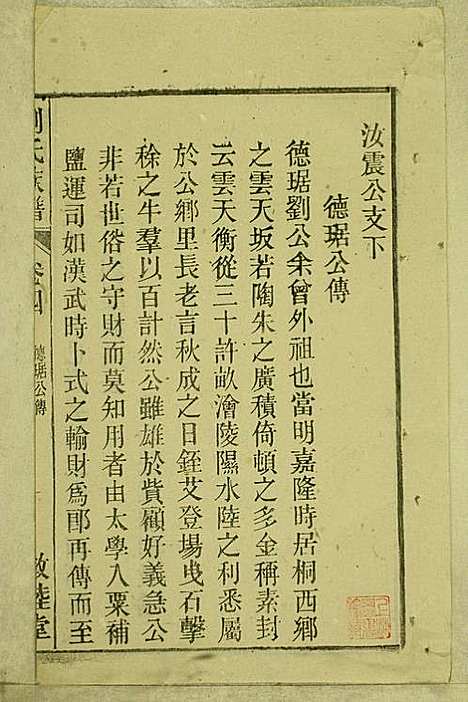 汝震公支下
德琚公傳
德琚劉公余曾外祖也當明嘉隆時居桐西鄉
之雲天坂若陶朱之廣積倚頓之多金稱素封
云雲天衡從三十許畝澮陵隰水陸之利悉屬
於公鄉里長老言秋成之日銍艾登場曵石擊
稌之牛羣以百計然公雖雄於貲顧好義急公
非若世俗之守財而莫知用者由太學入粟補
鹽運司如漢武時卜式之輸財爲郎再傳而至
劉氏族譜
卷四
德琚公傳
一
敦睦堂